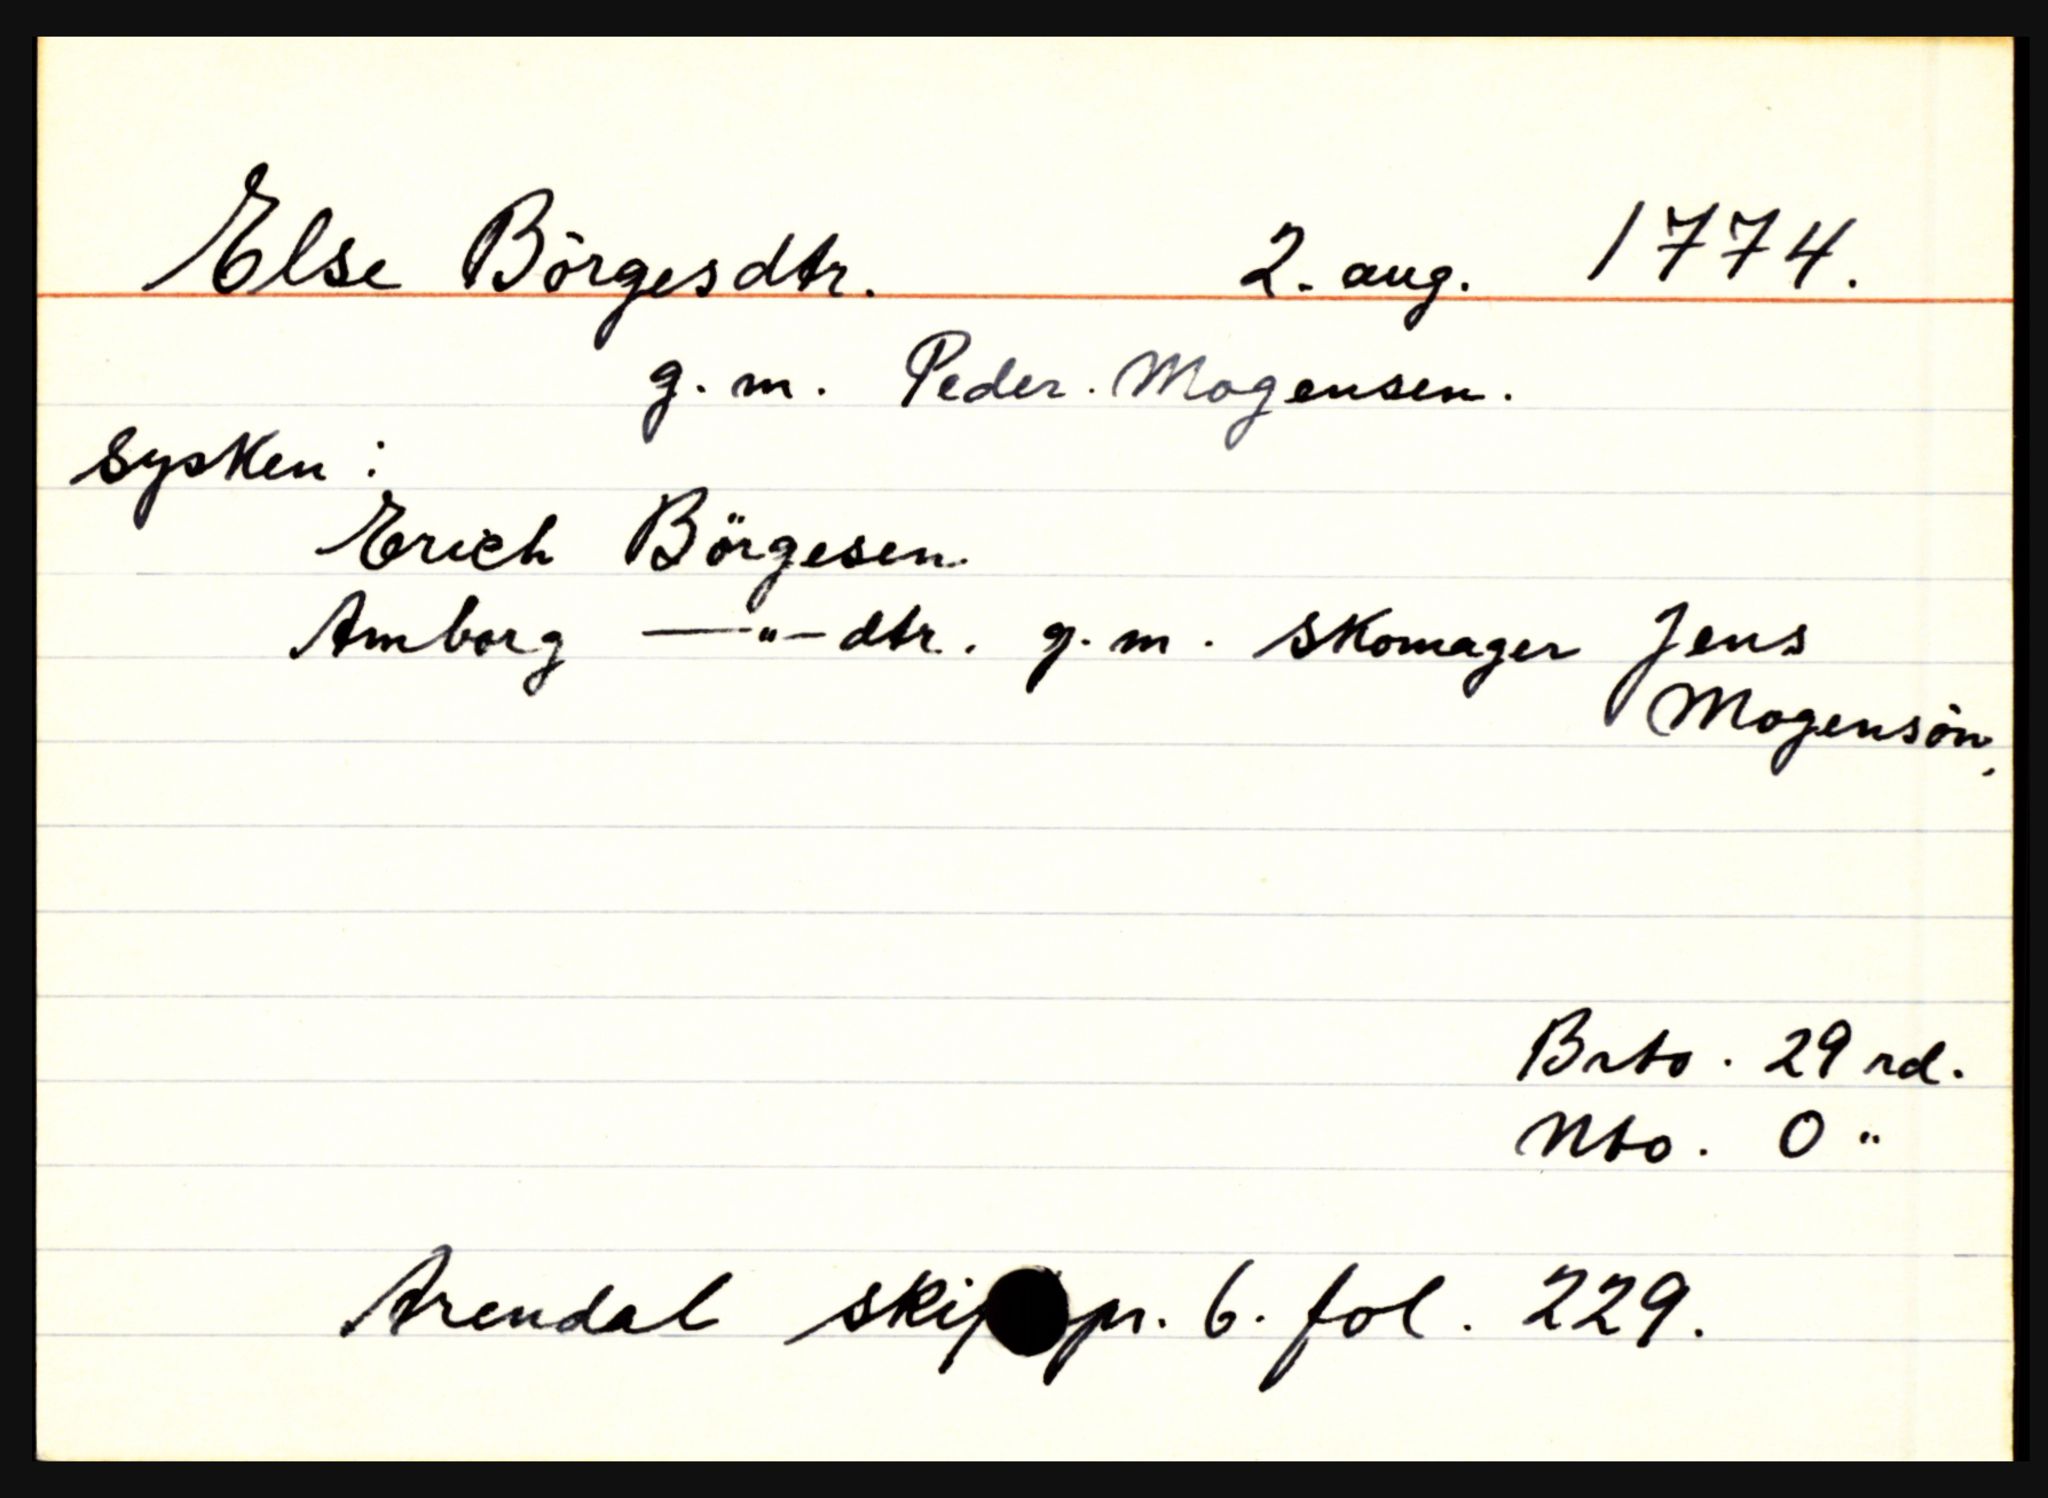 Else Börgesdtr. 2. aug. 1774.
g. m. Peder Mogensen.
Sysken:
Erich Börgesen
Amborg —"— dtr. g. m. skomager Jens
Mogensön,
Brto. 29 rd.
Nto. 0 "
Arendal pr. 6. fol. 229.